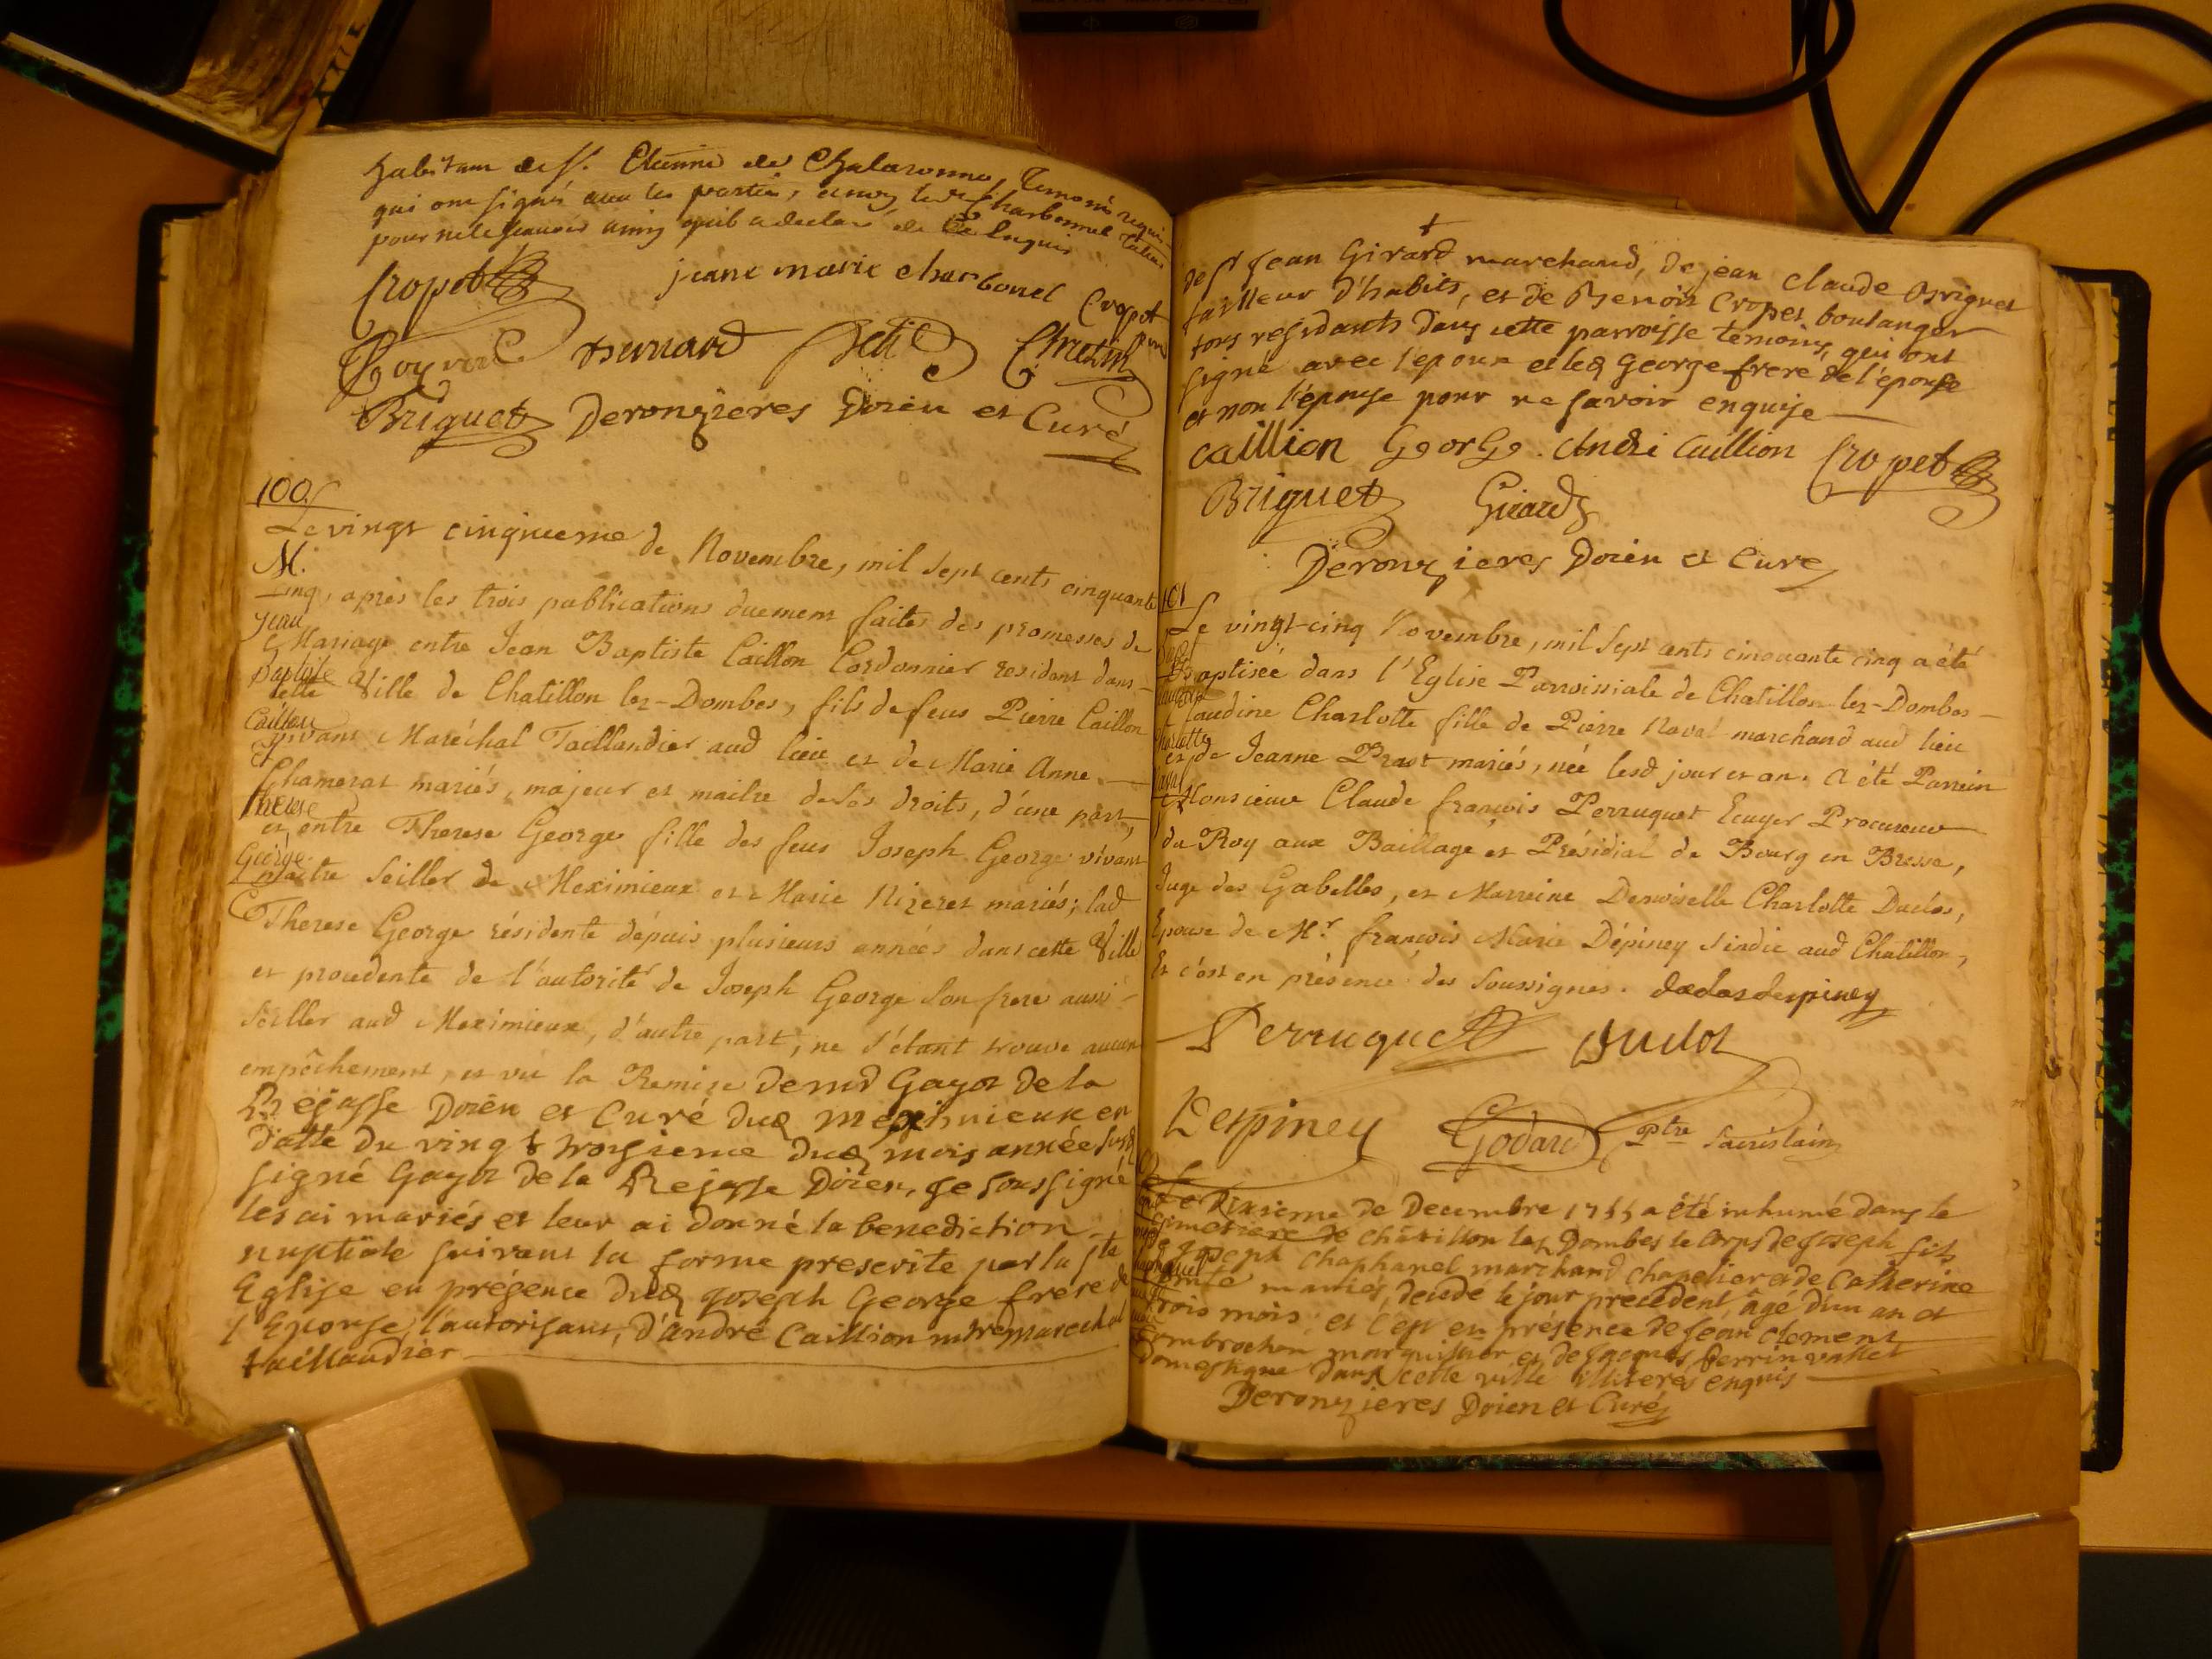 habitans de St. Etienne de Chalaronne, Temoins requis
qui ont signés avec les parties, et non led Charbonnel
pour ne le scavoir ainsy quil a declaré de ce Enquis
Cropet jeane marie charbonel Cropet
Bernard Petit Chretin
Briguet Deronzieres Doien et Curé
100
Le vingt cinquieme de Novembre, mil sept cents cinquante
M.
cinq, après les trois publications duement faites des promesses de
Jean
Mariage entre Jean Baptiste Caillon Cordonnier resident dans
Baptiste
cette Ville de Chatillon lez-Dombes, fils de feus Pierre Caillon
Caillon
vivant Maréchal Taillandier aud lieu et de Marie Anne
et
Chamerat mariés, majeur et maitre de ses droits, d'une part,
Therese
et entre Therese George fille des feus Joseph George vivant
George
maitre seiller de Meximieux et Marie Nizeret mariés; lad
Therese George résidente dépuis plusieurs années dans cette Ville
et procedente de l'autorité de Joseph George son frere aussi
seiller aud Meximieux, d'autre part; ne s'étant trouvé aucun
empêchement, et vu la Remise de mr Gayot de la
Rejasse Doien et Curé dud meximieux en
datte du vingt troisieme dud mois année susd
signé Gayot de la Rejasse Doien, je soussigné
les ai mariés et leur ai donné la benediction
nuptiale suivant la forme prescrite par la ste
Eglise en présence dud Joseph George frere de
l'Epouse, l'autorisant, d'andré Caillion mtre marechal
taillandier
de sr Jean Girard marchand, de jean claude Briguet
tailleur d'habits, et de Benoit Cropet boulanger
tous residants dans cette parroisse temoins, qui ont
signé avec l'epoux et led George frere de l'épouse
et non l'épouse pour ne savoir enquise
caillion GeorGe. Andri Caillion Cropet
Briguet Girard
Deronzieres Doien et Curé
101
Le vingt-cinq Novembre, mil sept cents cinquante cinq a été
Baptisée dans l'Eglise Parroissiale de Chatillon lez-Dombes
Claudine Charlotte fille de Pierre Naval marchand aud lieu
Charlotte
et de Jeanne Prost mariés, née lesd jour et an. A été Parrein
Monsieur Claude françois Perruquet Ecuyer Procureur
du Roy aux Baillage et Présidial de Bourg en Bresse,
Juge des Gabelles, et Marreine Demoiselle Charlotte Duclos,
Epouse de Mr. françois Marie Dépiney sindic aud Chatillon,
Et c'est en présence des soussignés. duclos despiney
Perruquet Duclos
Despiney Godard Ptre Sacristain
Le dixieme de Decembre 1755 a été inhumé dans le
cimetiere de châtillon les Dombes le corps de Joseph fils
de Joseph Chaphanel marchand chapelier et de Catherine
mariés, decedé le jour precedent, âgé d'un an et
trois mois; et c'est en présence de jean clement
marguillier et de jacques Perrin valet
domestique dans cette ville illiterés enquis
Deronzieres Doien et Curé